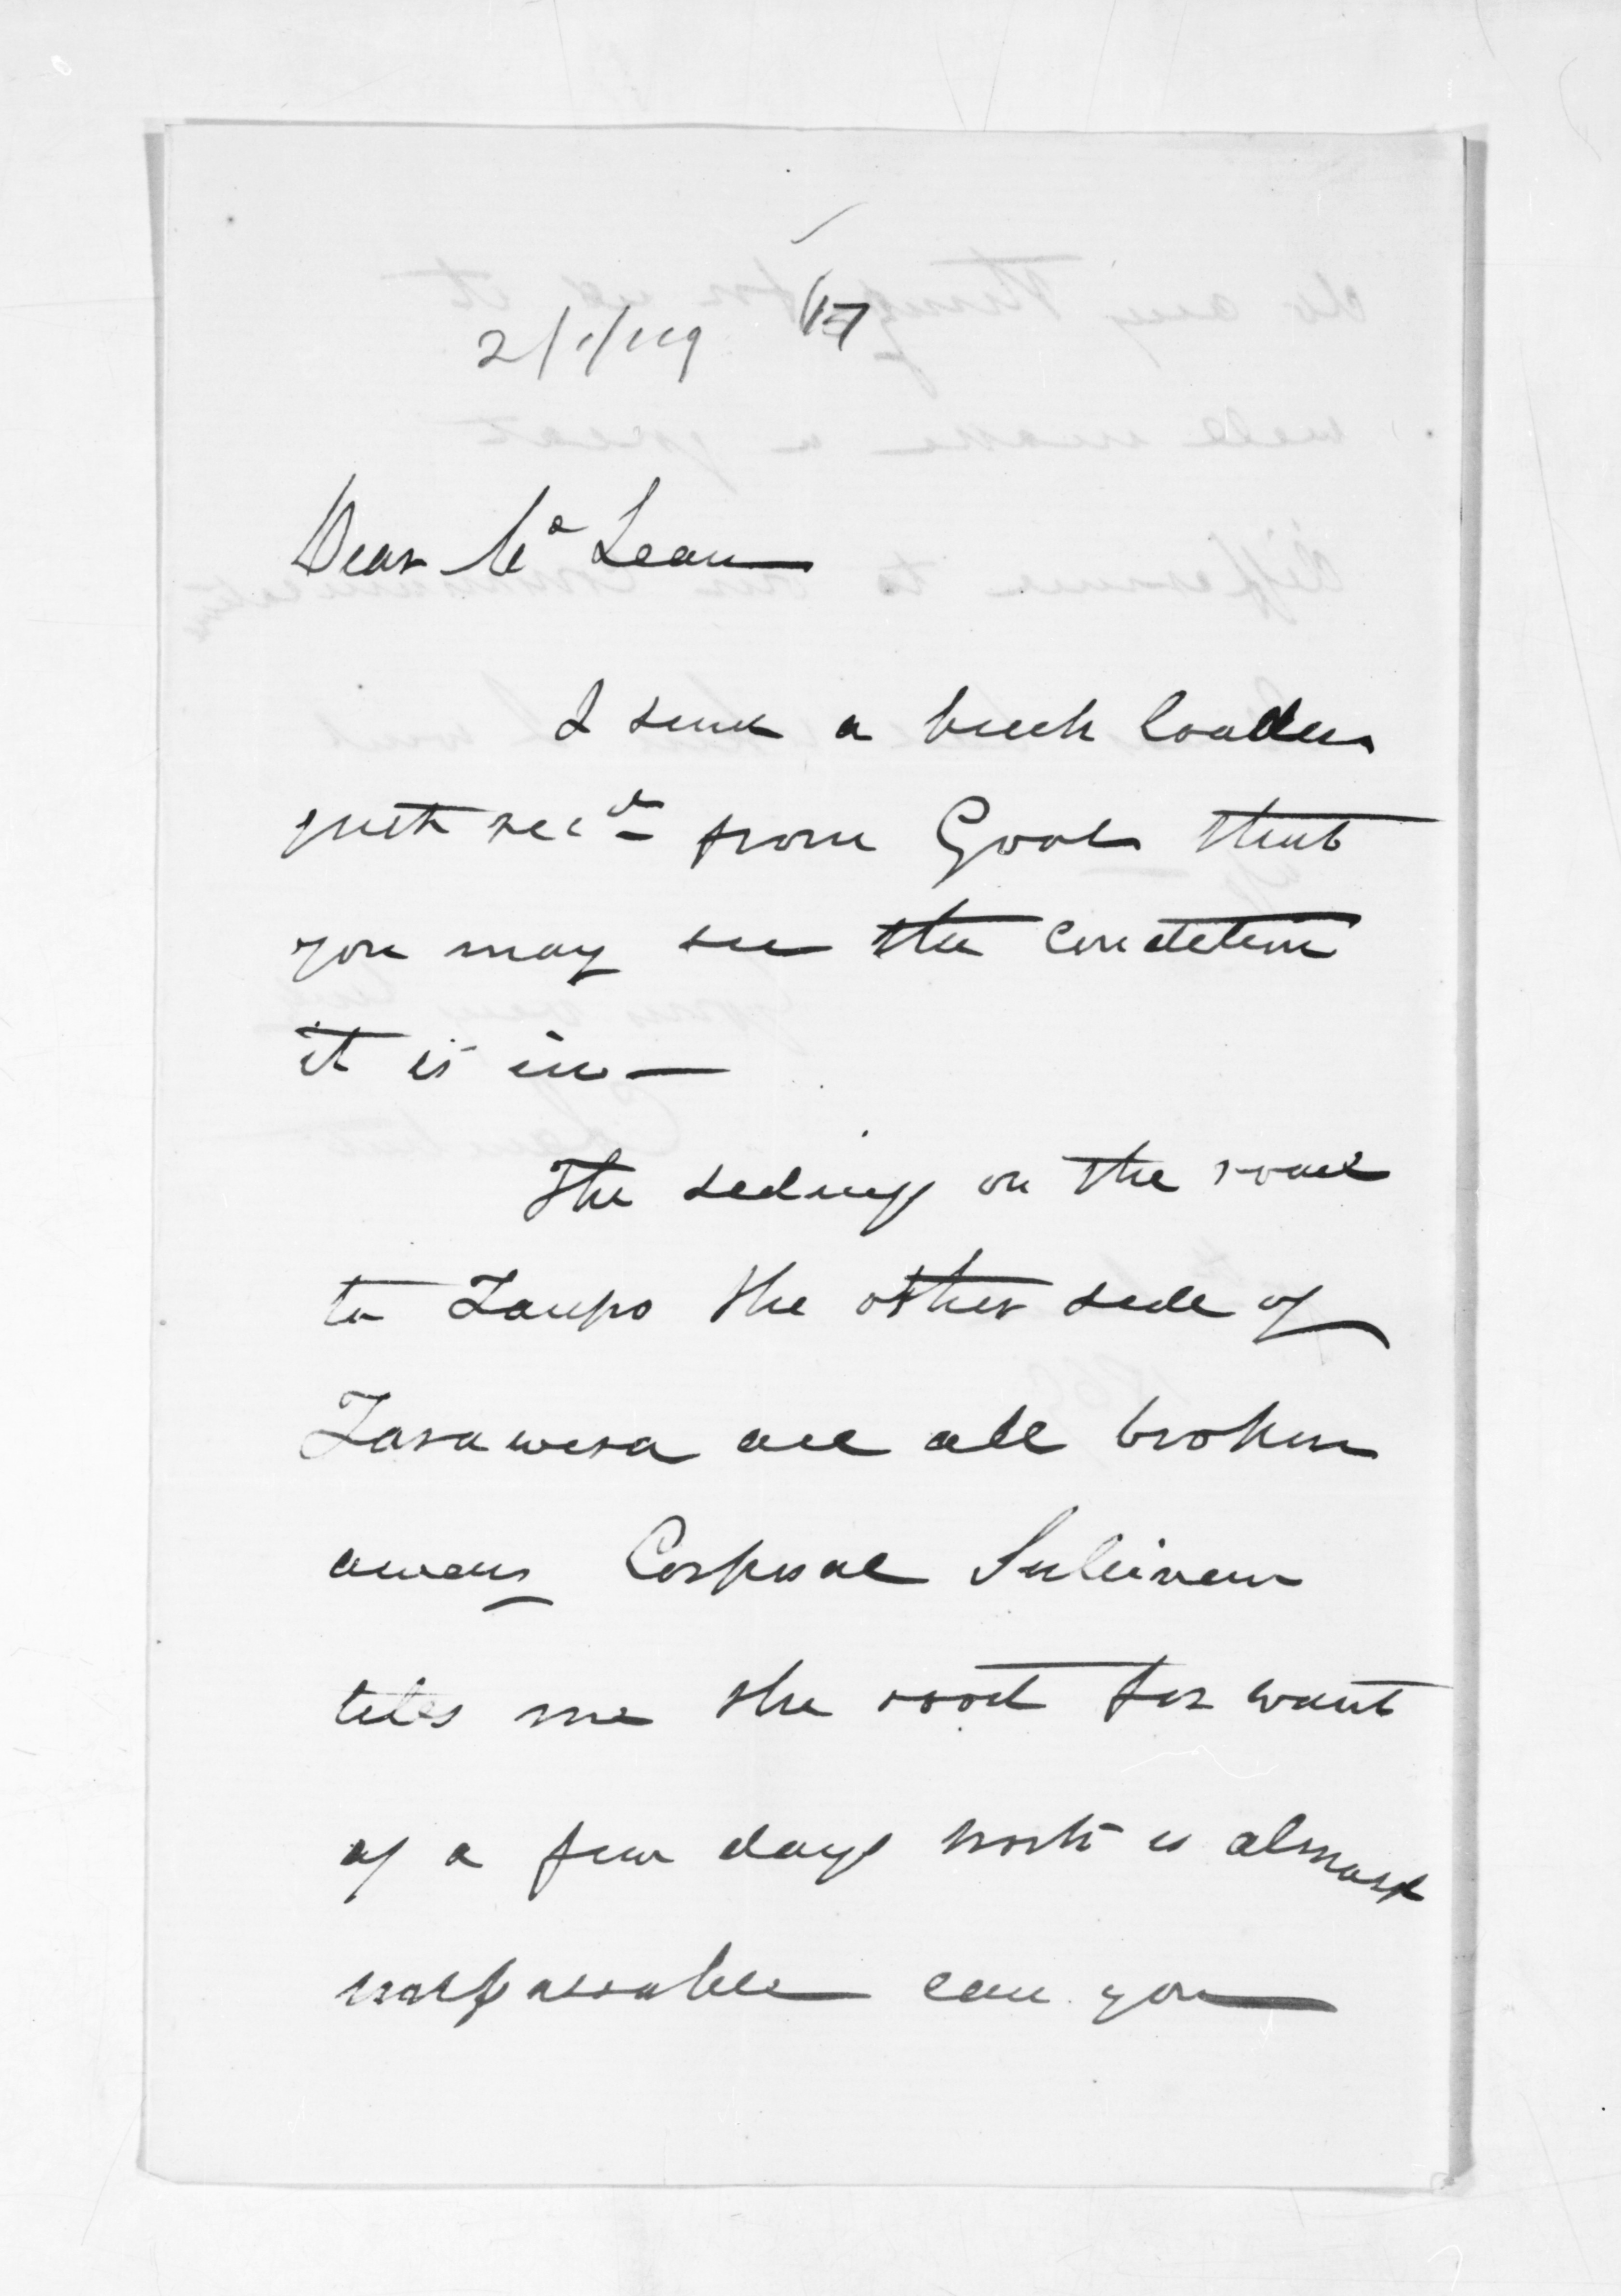 2/1/119 117
Dear McLean
I send a breech loader
just recd from Gaol that
you may see the condition
it is in —
The sidings on the road
to Taupo the other side of
Tarawera are all broken
away Corporal Sulivan
tells me the road for want
of a few days work is almost
impassable can you